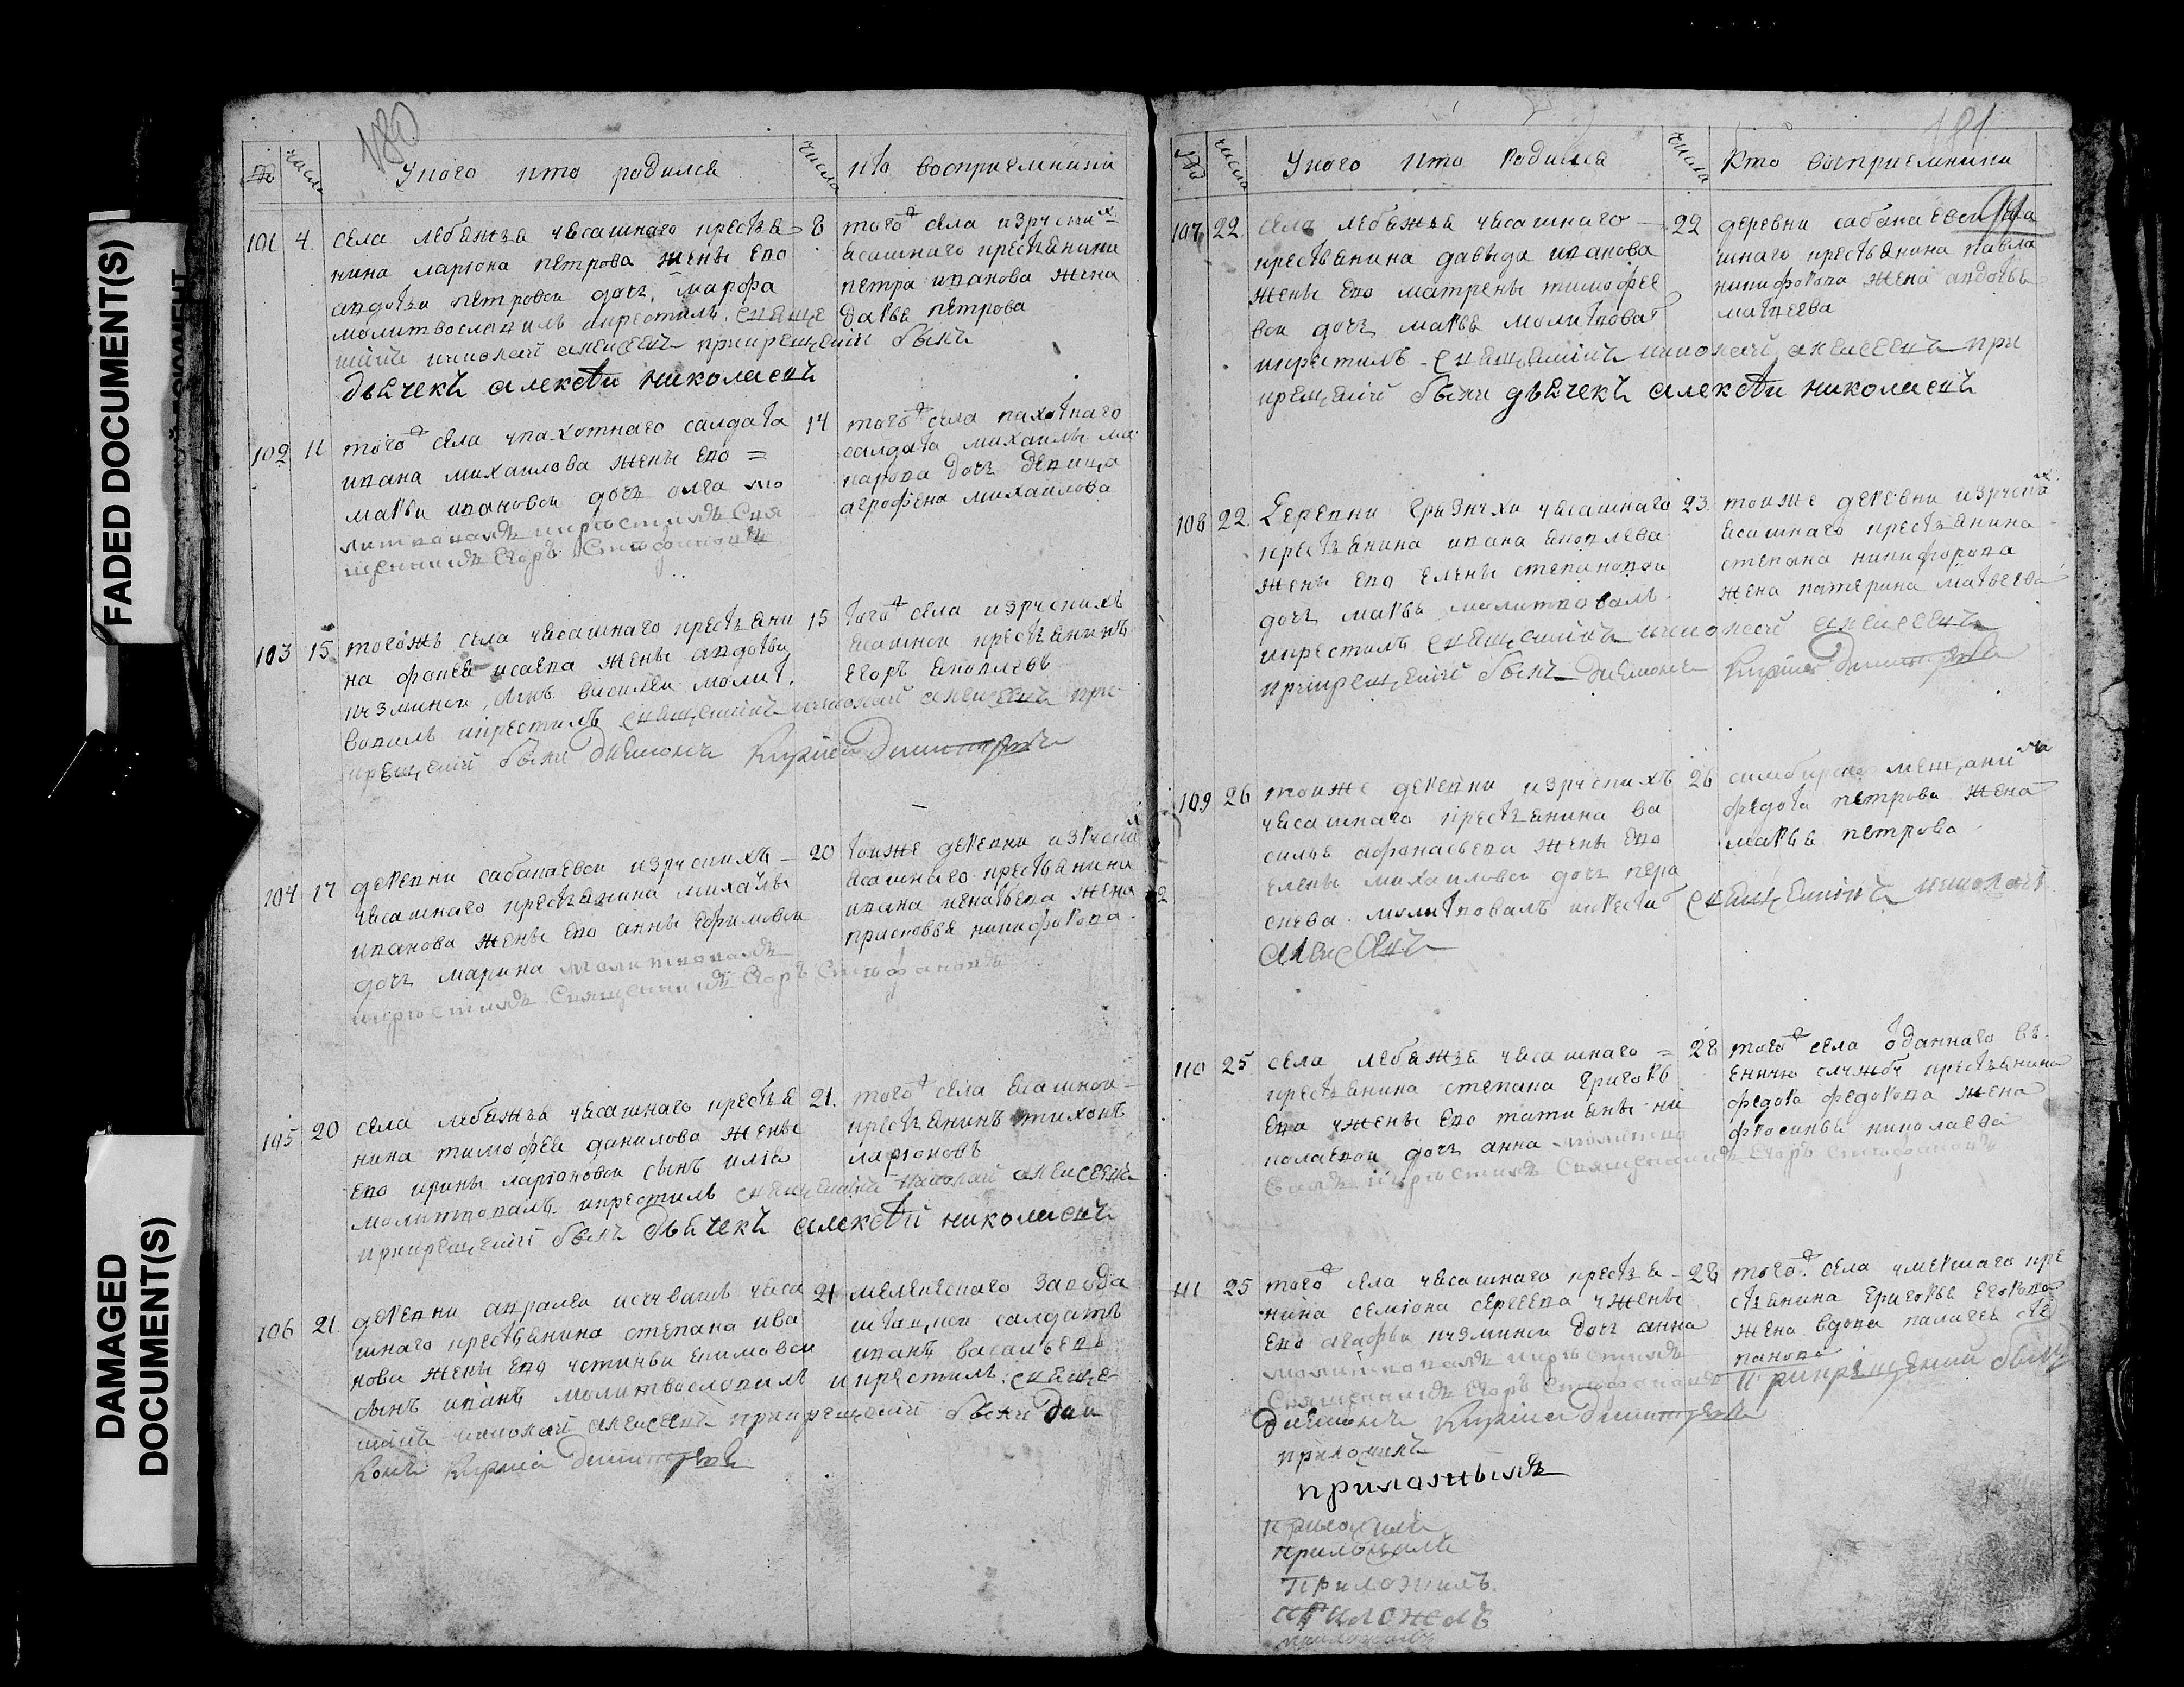 FADED DOCUMENT(S)
DAMAGED
DOCUMENT(S)
180
№ числа У кого кто родился числа кто восприемники
101 4. села лебяжья ясашнаго крестья
нина лариона петрова жены ево
авдотьи петровой дочь марфа
молитвословилъ и крестилъ священ
никъ николай алексеевъ при крещении былъ
дьячекъ алексѣй николаевъ
8 того села из руских
ясашнаго крестьянина
петра иванова жена
дарья петрова
102 11 того села пахотнаго салдата
ивана михаилова жены ево =
марьи ивановой дочь олга мо
литвовалъ и крестилъ свя
щенникъ Егоръ Стефановъ
14 того села пахотнаго
салдата михаилы ма
карова дочь девица
агрофена михаилова
103 15 тогожъ села ясашнаго крестьяни
на фокея исаева жены авдотьи
кузминой сынъ василеи молит
вовалъ и крестилъ священникъ николай алексеевъ при
крещении были дьяконъ Кирила Димитриевъ
15 того села из руских
ясашной крестьянинъ
егоръ яковлевъ
104 17 деревни сабакаевой из руских
ясашнаго крестьянина михаилы
иванова жены ево анны ефимовой
дочь марина молитвовалъ
и крестилъ Священникъ Егоръ Стефановъ
20 тоиже деревни из руских
ясашнаго крестьянина
ивана игнатьева жена
прасковья никифорова
105 20 села лебяжья ясашнаго крестья
нина тимофея данилова жены
ево ирины ларионовой сынъ илья
молитвовалъ и крестилъ священникъ николай алексеевъ
при крещении былъ дьячекъ алексѣй николаевъ
21. того села ясашной
крестьянинъ тихонъ
ларионовъ
106 21. деревни авралей ис чувашъ яса
шнаго крестьянина степана ива
нова жены ево устиньи якимовой
сынъ иванъ молитвословилъ и крестилъ священ
никъ николай алексеевъ при крещении были дья
конъ Кирила Димитриевъ
21 мелекескаго завода
штатной салдатъ
иванъ васильевъ
181
№ числа У кого кто родился числа Кто восприемники
107 22. села лебяжья ясашнаго
крестьянина давыда иванова
жены ево матрены тимофее
вой дочь марья молитвовал
и крестилъ священникъ николай алексеевъ при
крещении были дьячекъ алексѣй николаевъ
22 деревни сабакаевой яса
шнаго крестьянина павла
никифорова жена авдотья
матвеева
108 22. Деревни грязнухи ясашнаго
крестьянина ивана яковлева
жены ево елены степановой
дочь марья молитвовалъ
и крестилъ священникъ николай алексеевъ
при крещении былъ дьяконъ Кирила Димитриевъ
23. тоиже деревни из руских
ясашнаго крестьянина
степана никифорова
жена катерина матвеева
109 26 тоиже деревни из руских
ясашнаго крестьянина ва
силья афонасьева жены ево
елены михаиловой дочь пара
скева молитвовалъ и крестил священникъ николай
алексеевъ
26 симбирскаго мещанина
федота петрова жена
марья петрова
110 25 села лебяжья ясашнаго =
крестьянина степана григорь
ева у жены ево татияны ни
колаевой дочь анна молитво
валъ и крестилъ Священникъ Егоръ Стефановъ
28 того села отданнаго въ
военную службу крестьянина
федора федорова жена
фросинья николаева
111 25 того села ясашнаго крестья
нина семиона сергеева у жены
ево агафьи кузминой дочь анна
молитвовалъ и крестилъ
Священникъ Егоръ Стефановъ При крещении былъ
дьяконъ Кирила Димитриевъ
28 того села умершаго кре
стьянина григорья егорова
жена вдова палагея сте
панова
приложилъ
приложилъ
приложилъ
приложилъ
приложилъ
приложилъ